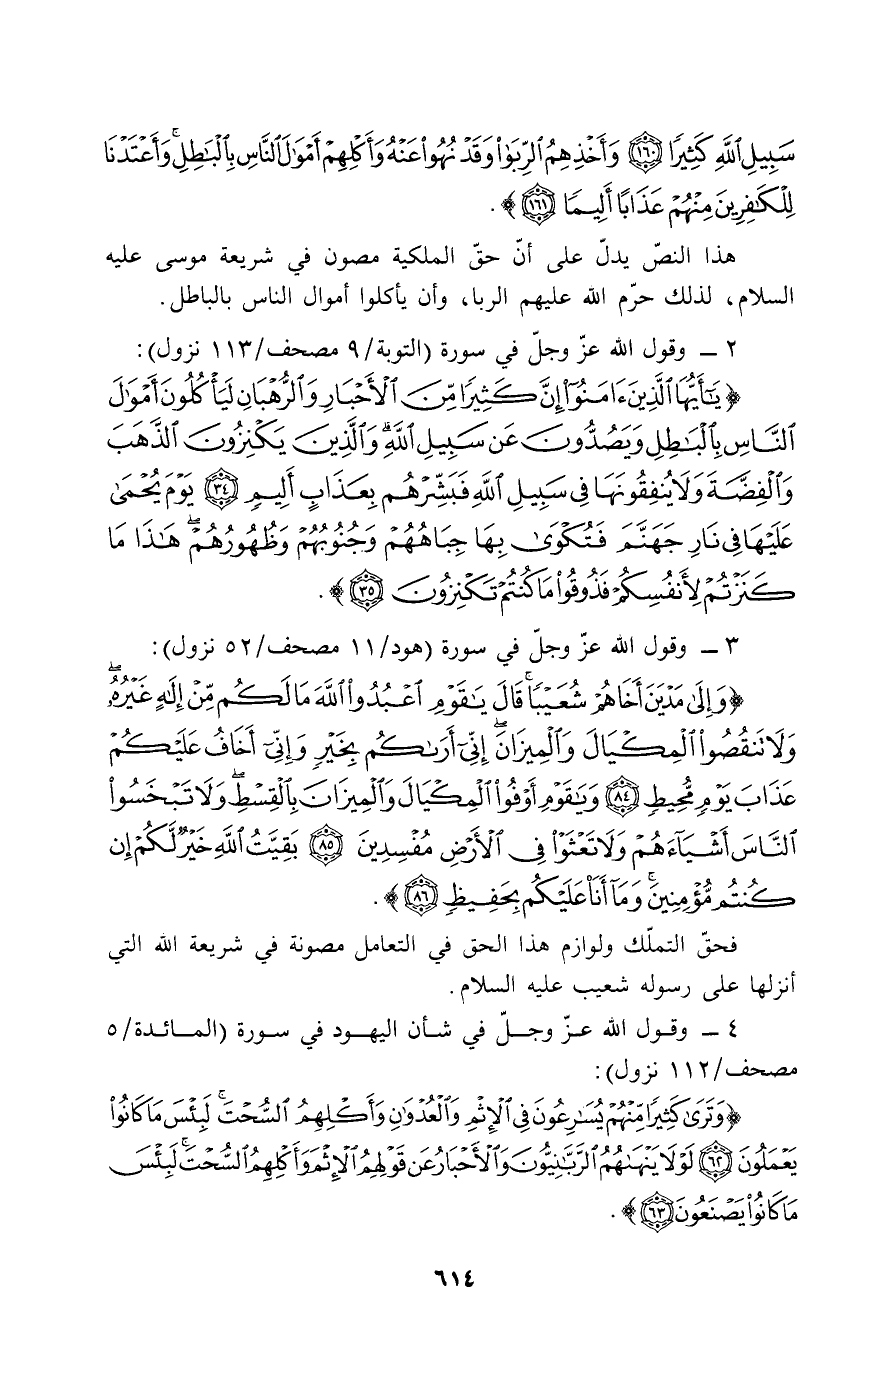 سَبِيلِ ٱللَّهِ كَثِيرًا ﴿١٦٠﴾ وَأَخْذِهِمُ ٱلرِّبَوٰا۟ وَقَدْ نُهُوا۟ عَنْهُ وَأَكْلِهِمْ أَمْوَٰلَ ٱلنَّاسِ بِٱلْبَٰطِلِ ۚ وَأَعْتَدْنَا
لِلْكَٰفِرِينَ مِنْهُمْ عَذَابًا أَلِيمًا ﴿١٦١﴾ ﴾ .
هذا النصّ يدلّ على أنّ حقّ الملكية مصون في شريعة موسى عليه
السلام، لذلك حرّم الله عليهم الربا، وأن يأكلوا أموال الناس بالباطل.
٢ ــ وقول الله عزّ وجلّ في سورة (التوبة/٩ مصحف/١١٣ نزول):
﴿ يَٰٓأَيُّهَا ٱلَّذِينَ ءَامَنُوٓا۟ إِنَّ كَثِيرًا مِّنَ ٱلْأَحْبَارِ وَٱلرُّهْبَانِ لَيَأْكُلُونَ أَمْوَٰلَ
ٱلنَّاسِ بِٱلْبَٰطِلِ وَيَصُدُّونَ عَن سَبِيلِ ٱللَّهِ ۗ وَٱلَّذِينَ يَكْنِزُونَ ٱلذَّهَبَ
وَٱلْفِضَّةَ وَلَا يُنفِقُونَهَا فِى سَبِيلِ ٱللَّهِ فَبَشِّرْهُم بِعَذَابٍ أَلِيمٍ ﴿٣٤﴾ يَوْمَ يُحْمَىٰ
عَلَيْهَا فِى نَارِ جَهَنَّمَ فَتُكْوَىٰ بِهَا جِبَاهُهُمْ وَجُنُوبُهُمْ وَظُهُورُهُمْ ۖ هَٰذَا مَا
كَنَزْتُمْ لِأَنفُسِكُمْ فَذُوقُوا۟ مَا كُنتُمْ تَكْنِزُونَ ﴿٣٥﴾ ﴾ .
٣ ــ وقول الله عزّ وجلّ في سورة (هود/١١ مصحف/٥٢ نزول):
﴿ وَإِلَىٰ مَدْيَنَ أَخَاهُمْ شُعَيْبًا ۚ قَالَ يَٰقَوْمِ ٱعْبُدُوا۟ ٱللَّهَ مَا لَكُم مِّنْ إِلَٰهٍ غَيْرُهُۥ ۖ
وَلَا تَنقُصُوا۟ ٱلْمِكْيَالَ وَٱلْمِيزَانَ ۖ إِنِّىٓ أَرَىٰكُم بِخَيْرٍ وَإِنِّىٓ أَخَافُ عَلَيْكُمْ
عَذَابَ يَوْمٍ مُّحِيطٍ ﴿٨٤﴾ وَيَٰقَوْمِ أَوْفُوا۟ ٱلْمِكْيَالَ وَٱلْمِيزَانَ بِٱلْقِسْطِ ۖ وَلَا تَبْخَسُوا۟
ٱلنَّاسَ أَشْيَآءَهُمْ وَلَا تَعْثَوْا۟ فِى ٱلْأَرْضِ مُفْسِدِينَ ﴿٨٥﴾ بَقِيَّتُ ٱللَّهِ خَيْرٌ لَّكُمْ إِن
كُنتُم مُّؤْمِنِينَ ۚ وَمَآ أَنَا۠ عَلَيْكُم بِحَفِيظٍ ﴿٨٦﴾ ﴾ .
فحقّ التملّك ولوازم هذا الحق في التعامل مصونة في شريعة الله التي
أنزلها على رسوله شعيب عليه السلام.
٤ ــ وقول الله عزّ وجلّ في شأن اليهود في سورة (المائدة/٥
مصحف/١١٢ نزول):
﴿ وَتَرَىٰ كَثِيرًا مِّنْهُمْ يُسَٰرِعُونَ فِى ٱلْإِثْمِ وَٱلْعُدْوَٰنِ وَأَكْلِهِمُ ٱلسُّحْتَ ۚ لَبِئْسَ مَا كَانُوا۟
يَعْمَلُونَ ﴿٦٢﴾ لَوْلَا يَنْهَىٰهُمُ ٱلرَّبَّٰنِيُّونَ وَٱلْأَحْبَارُ عَن قَوْلِهِمُ ٱلْإِثْمَ وَأَكْلِهِمُ ٱلسُّحْتَ ۚ لَبِئْسَ
مَا كَانُوا۟ يَصْنَعُونَ ﴿٦٣﴾ ﴾ .
٦١٤